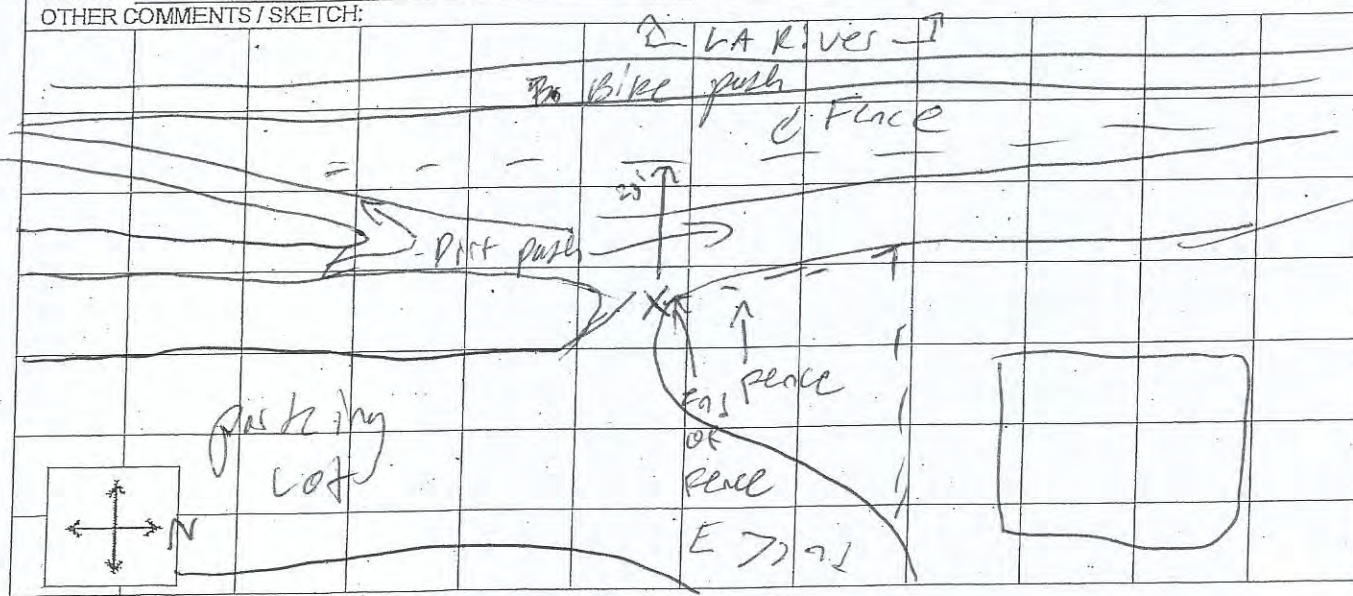 OTHER COMMENTS / SKETCH:
LA River
Bike path
Fence
25'
Dirt path
X
End of fence
fence
parking
Lot
N
E